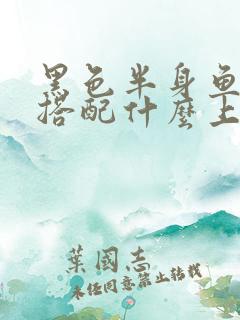 黑色半身鱼
搭配什麼上
葉國志
未经同意禁止转载